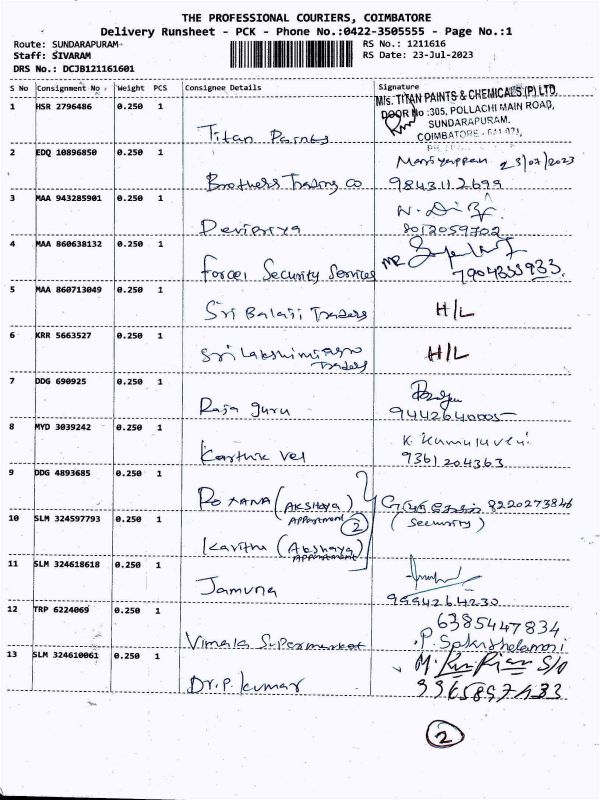 THE PROFESSIONAL COURIERS, COIMBATORE
Delivery Runsheet - PCK - Phone No.:0422-3505555 - Page No.:1
Route: SUNDARAPURAM
RS No.: 1211616
Staff: SIVARAM
RS Date: 23-Jul-2023
DRS No.: DCJB121161601
S No Consignment No Weight PCS Consignee Details Signature
M/s. TITAN PAINTS & CHEMICALS (P) LTD.
1 HSR 2796486 0.250 1
DOOR No :305, POLLACHI MAIN ROAD,
SUNDARAPURAM.
Titan Paints
COIMBATORE - 641 021,
2 EDQ 10896850 0.250 1
Mariyappan 23/07/2023
Brothers Trading co 9843112699
3 MAA 943285901 0.250 1
Devipriya 8012059702
4 MAA 860638132 0.250 1
Force1 Security Services
5 MAA 860713049 0.250 1
Sri Balaji Traders H/L
6 KRR 5663527 0.250 1
Sri Lakshmi agro H/L
Traders
7 DDG 690925 0.250 1
Raja guru 9442640005
8 MYD 3039242 0.250 1
Karthik vel 9361204363
9 DDG 4893685 0.250 1
Roxana (Akshaya) 8220273846
Appartment
10 SLM 324597793 0.250 1
2 (Security)
Kavitha (Akshaya)
Appartment
11 SLM 324618618 0.250 1
Jamuna 9994264230
12 TRP 6224069 0.250 1
6385447834
Vimala Supermarket
13 SLM 324610061 0.250 1
Dr.P. kumar
2